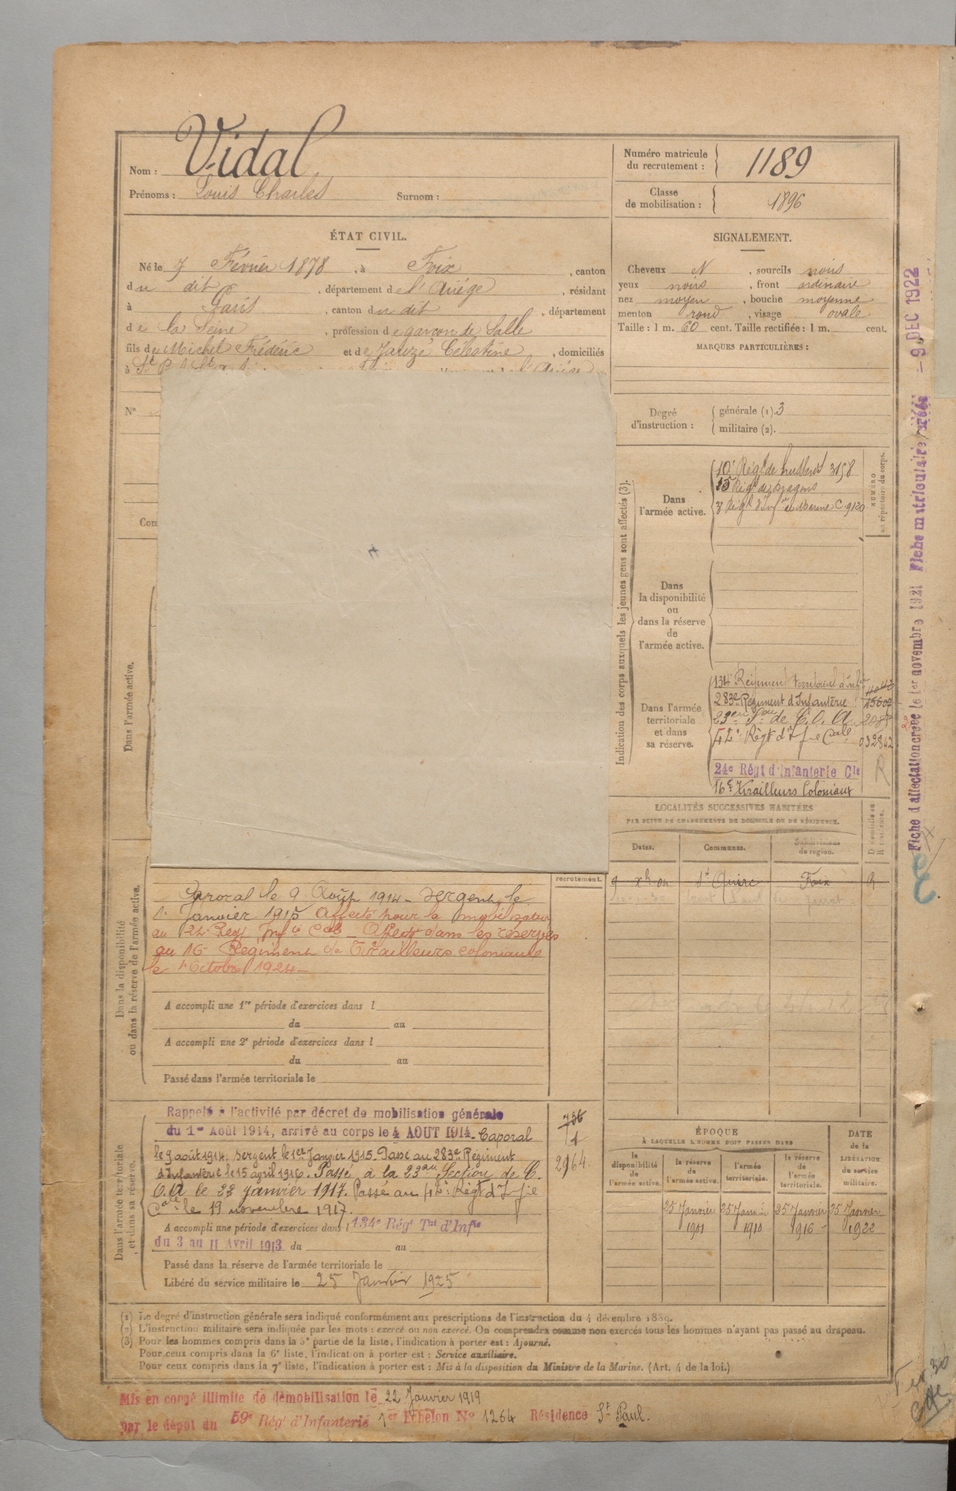 Nom : Vidal
Prénoms : Louis Charles Surnom :
Numéro matricule du recrutement : 1189
Classe de mobilisation : 1896
ÉTAT CIVIL.
Né le 7 Février 1878, à Foix, canton
du dit, département de l'Ariège, résidant
à Paris, canton du dit, département
de la Seine, profession de garçon de Salle
fils de Michel Frédéric et de Jauzé Célestine, domiciliés
SIGNALEMENT.
Cheveux N, sourcils noirs
yeux noirs, front ordinaire
nez moyen, bouche moyenne
menton rond, visage ovale
Taille : 1 m. 60 cent. Taille rectifiée : 1 m. cent.
MARQUES PARTICULIÈRES :
Nº
Con
Degré d'instruction :
générale (1) 3
militaire (2).
Indication des corps auxquels les jeunes gens sont affectés (3).
NUMÉRO au répertoire du corps.
Dans l'armée active.
10e Régt de hussards 3158
15 Régt de Dragons
Dans la disponibilité ou dans la réserve de l'armée active.
Dans l'armée territoriale et dans sa réserve.
134e Régiment territorial d'Infie
283e Régiment d'Infanterie
23eme Son de C. O. A.
42e Régt d'Infie Cale
24e Régt d'Infanterie Cle
16e Tirailleurs Coloniaux
R
LOCALITÉS SUCCESSIVES HABITÉES
PAR SUITE DE CHANGEMENTS DE DOMICILE OU DE RÉSIDENCE.
Dates.
Communes.
Subdivisions de région.
Foix
Dans l'armée active.
recrutement.
Dans la disponibilité ou dans la réserve de l'armée active.
Caporal le 9 Août 1914. Sergent le
1er Janvier 1915 Affecté pour la mobilisation
au 24 Regt Infie Cale - Affecté dans les réserves
au 16e Régiment de Tirailleurs coloniaux
le 1er Octobre 1924
A accompli une 1re période d'exercices dans l
du au
A accompli une 2e période d'exercices dans l
du au
Passé dans l'armée territoriale le
Dans l'armée territoriale et dans sa réserve.
Rappelé à l'activité par décret de mobilisation générale
du 1er Août 1914, arrivé au corps le 4 AOUT 1914. Caporal
le 9 août 1914. sergent le 1er Janvier 1915. Passé au 283e Régiment
d'Infanterie le 15 avril 1916. Passé à la 23eme Section de C.
O. A le 23 janvier 1917. Passé au 42e Régt d'Infie
Cale le 19 novembre 1917.
A accompli une période d'exercices dans l 134e Régt Tal d'Infie
du 3 au 11 Avril 1913 du au
Passé dans la réserve de l'armée territoriale le
Libéré du service militaire le 25 Janvier 1925
736
1
2964
ÉPOQUE
À LAQUELLE L'HOMME DOIT PASSER DANS
DATE DE LA LIBÉRATION du service militaire.
la disponibilité de l'armée active.
la réserve de l'armée active.
l'armée territoriale.
la réserve de l'armée territoriale.
25 Janvier 1901
25 Janvier 1910
25 Janvier 1916
25 Janvier 1922
(1) Le degré d'instruction générale sera indiqué conformément aux prescriptions de l'instruction du 4 décembre 1889.
(2) L'instruction militaire sera indiquée par les mots : exercé ou non exercé. On comprendra comme non exercés tous les hommes n'ayant pas passé au drapeau.
(3) Pour les hommes compris dans la 5e partie de la liste, l'indication à porter est : Ajourné.
Pour ceux compris dans la 6e liste, l'indication à porter est : Service auxiliaire.
Pour ceux compris dans la 7e liste, l'indication à porter est : Mis à la disposition du Ministre de la Marine. (Art. 4 de la loi.)
Mis en congé illimité de démobilisation le 22 Janvier 1919
par le dépôt du 59e Régt d'Infanterie 1er Echelon Nº 1264 Résidence St Paul.
Fiche d'affectation créée le 1er novembre 1921 Fiche matriculaire créée - 9 DEC 1922